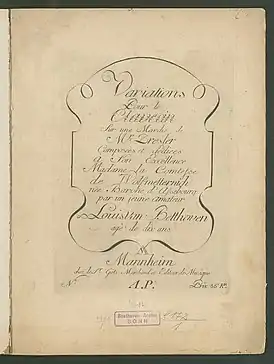 Variations
Pour le
Clavecin
Sur une Marche de
Mr. Dresler
Composées et dediées
a Son Excellence
Madame La Comtesse
de Wolfmetternich
née Baronne d'Assebourg
par un jeune amateur
Louis van Betthoven
agé de dix ans
A
Mannheim
chez le Sr. Götz Marchand et Editeur de Musique
No.
A.P.
Prix
BONN